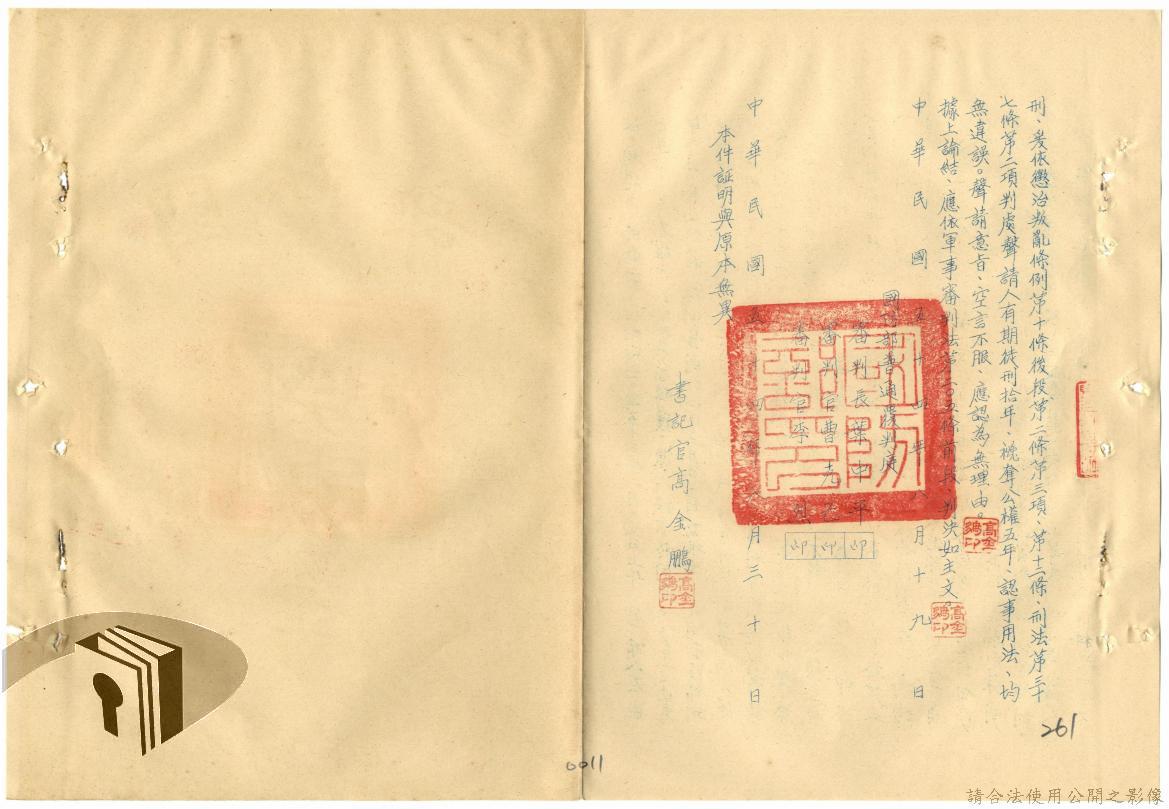 刑、爰依懲治叛亂條例第十條後段第二條第三項、第十二條、刑法第三十
七條第二項判處聲請人有期徒刑拾年、褫奪公權五年、認事用法、均
無違誤。聲請意旨、空言不服、應認為無理由。
據上論結、應依軍事審判法第二百五條前段、判決如主文。
中華民國五十四年八月十九日
國防部普通覆判庭
審判長葉中平
審判官曹
審判官李
印
印
印
中華民國五十四年八月三十日
本件証明與原本無異
書記官高金鵬
高金鵬印
高金鵬印
高金鵬印
261
0011
請合法使用公開之影像